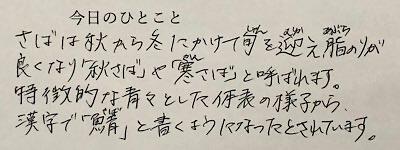 今日のひとこと
さばは秋から冬にかけて旬を迎え脂のりが
良くなり「秋さば」や「寒さば」と呼ばれます。
特徴的な青々とした体表の様子から、
漢字で「鯖」と書くようになったとされています。